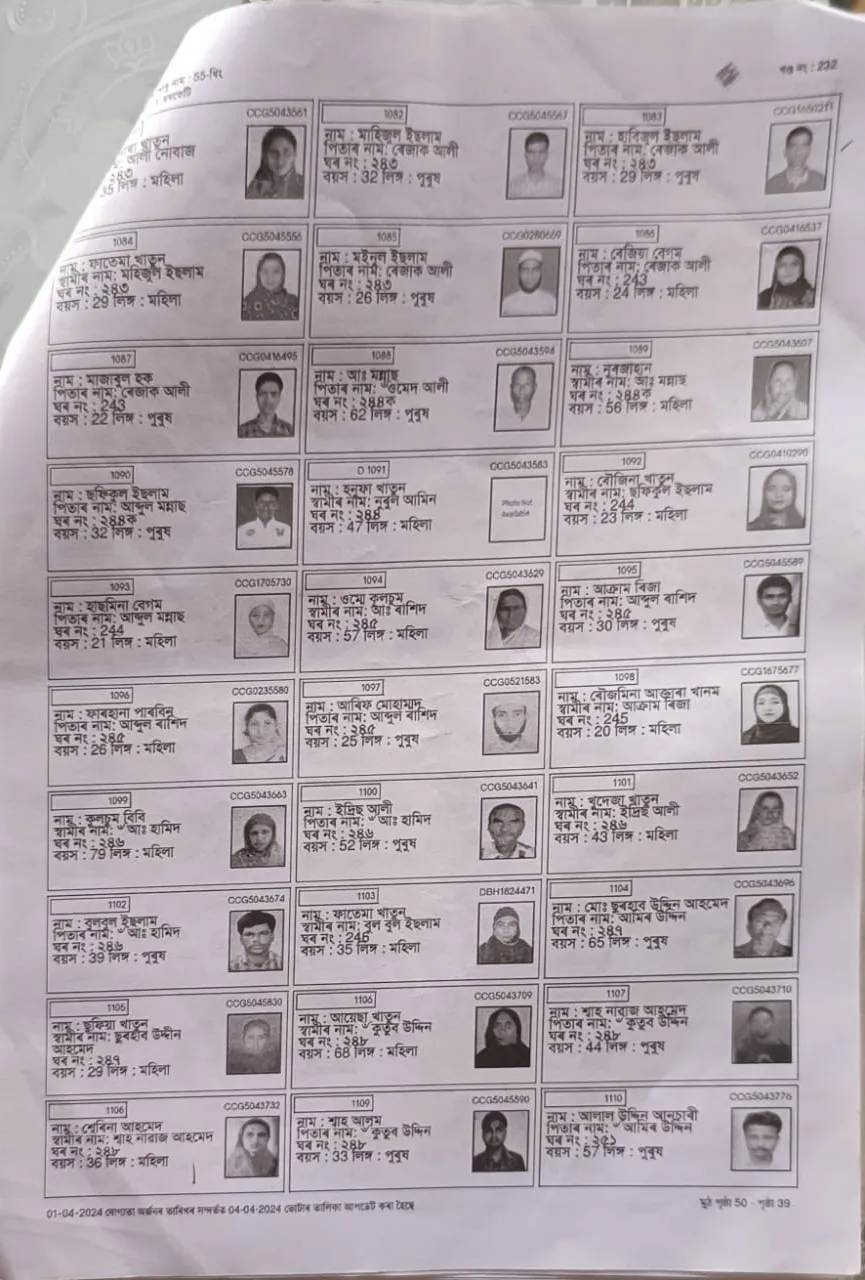 নাম : 55-ধিং
খণ্ড নং : 232
CCG5043561
খাতুন
আলী নোবাজ
২৪৩
35 লিঙ্গ : মহিলা
1082
CCG5045567
নাম : মাহিজুল ইছলাম
পিতাৰ নাম: ৰেজাক আলী
ঘৰ নং : ২৪৩
বয়স : 32 লিঙ্গ : পুৰুষ
1083
নাম : হাবিজুল ইছলাম
পিতাৰ নাম: ৰেজাক আলী
ঘৰ নং : ২৪৩
বয়স : 29 লিঙ্গ : পুৰুষ
1084
CCG5045556
নাম : ফাতেমা খাতুন
স্বামীৰ নাম: মহিজুল ইছলাম
ঘৰ নং : ২৪৩
বয়স : 29 লিঙ্গ : মহিলা
1085
CCG0280669
নাম : মইনুল ইছলাম
পিতাৰ নাম: ৰেজাক আলী
ঘৰ নং : ২৪৩
বয়স : 26 লিঙ্গ : পুৰুষ
1086
CCG0416537
নাম : ৰেজিয়া বেগম
পিতাৰ নাম: ৰেজাক আলী
ঘৰ নং : 243
বয়স : 24 লিঙ্গ : মহিলা
1087
CCG0416495
নাম : মাজাবুল হক
পিতাৰ নাম: ৰেজাক আলী
ঘৰ নং : 243
বয়স : 22 লিঙ্গ : পুৰুষ
1088
CCG5043594
নাম : আঃ মন্নাছ
পিতাৰ নাম: ওমেদ আলী
ঘৰ নং : ২৪৪ক
বয়স : 62 লিঙ্গ : পুৰুষ
1089
CCG5043607
নাম : নূৰজাহান
স্বামীৰ নাম: আঃ মন্নাছ
ঘৰ নং : ২৪৪ক
বয়স : 56 লিঙ্গ : মহিলা
1090
CCG5045578
নাম : ছফিকুল ইছলাম
পিতাৰ নাম: আব্দুল মন্নাছ
ঘৰ নং : ২৪৪ক
বয়স : 32 লিঙ্গ : পুৰুষ
D 1091
CCG5043583
নাম : হনুফা খাতুন
স্বামীৰ নাম: নূৰুল আমিন
ঘৰ নং : ২৪৪
বয়স : 47 লিঙ্গ : মহিলা
Photo Not
Available
1092
CCG0410290
নাম : ৰৌজিনা খাতুন
স্বামীৰ নাম: ছফিকুল ইছলাম
ঘৰ নং : 244
বয়স : 23 লিঙ্গ : মহিলা
1093
CCG1705730
নাম : হাছমিনা বেগম
পিতাৰ নাম: আব্দুল মন্নাছ
ঘৰ নং : 244
বয়স : 21 লিঙ্গ : মহিলা
1094
CCG5043629
নাম : ওমো কুলচুম
স্বামীৰ নাম: আঃ ৰাশিদ
ঘৰ নং : ২৪৫
বয়স : 57 লিঙ্গ : মহিলা
1095
CCG5045589
নাম : আক্ৰাম ৰিজা
পিতাৰ নাম: আব্দুল ৰাশিদ
ঘৰ নং : ২৪৫
বয়স : 30 লিঙ্গ : পুৰুষ
1096
CCG0235580
নাম : ফাৰহানা পাৰবিন
পিতাৰ নাম: আব্দুল ৰাশিদ
ঘৰ নং : ২৪৫
বয়স : 26 লিঙ্গ : মহিলা
1097
CCG0521583
নাম : আৰিফ মোহাম্মদ
পিতাৰ নাম: আব্দুল ৰাশিদ
ঘৰ নং : ২৪৫
বয়স : 25 লিঙ্গ : পুৰুষ
1098
CCG1675677
নাম : ৰৌজমিনা আক্তাৰা খানম
স্বামীৰ নাম: আক্ৰাম ৰিজা
ঘৰ নং : 245
বয়স : 20 লিঙ্গ : মহিলা
1099
CCG5043663
নাম : কুলচুম বিবি
স্বামীৰ নাম: আঃ হামিদ
ঘৰ নং : ২৪৬
বয়স : 79 লিঙ্গ : মহিলা
1100
CCG5043641
নাম : ইদ্ৰিছ আলী
পিতাৰ নাম: আঃ হামিদ
ঘৰ নং : ২৪৬
বয়স : 52 লিঙ্গ : পুৰুষ
1101
CCG5043652
নাম : খুদেজা খাতুন
স্বামীৰ নাম: ইদ্ৰিছ আলী
ঘৰ নং : ২৪৬
বয়স : 43 লিঙ্গ : মহিলা
1102
CCG5043674
নাম : বুলবুল ইছলাম
পিতাৰ নাম: আঃ হামিদ
ঘৰ নং : ২৪৬
বয়স : 39 লিঙ্গ : পুৰুষ
1103
DBH1824471
নাম : ফাতেমা খাতুন
স্বামীৰ নাম: বুল বুল ইছলাম
ঘৰ নং : 246
বয়স : 35 লিঙ্গ : মহিলা
1104
CCG5043696
নাম : মোঃ ছুৰহাব উদ্দিন আহমেদ
পিতাৰ নাম: আমিৰ উদ্দিন
ঘৰ নং : ২৪৭
বয়স : 65 লিঙ্গ : পুৰুষ
1105
CCG5045830
নাম : ছুফিয়া খাতুন
স্বামীৰ নাম: ছুৰহাব উদ্দীন
আহমেদ
ঘৰ নং : ২৪৭
বয়স : 29 লিঙ্গ : মহিলা
1106
CCG5043709
নাম : আয়েছা খাতুন
স্বামীৰ নাম: কুতুব উদ্দিন
ঘৰ নং : ২৪৮
বয়স : 68 লিঙ্গ : মহিলা
1107
CCG5043710
নাম : শ্বাহ নাৰাজ আহমেদ
পিতাৰ নাম: কুতুব উদ্দিন
ঘৰ নং : ২৪৮
বয়স : 44 লিঙ্গ : পুৰুষ
1108
CCG5043732
নাম : শ্বেৰিনা আহমেদ
স্বামীৰ নাম: শ্বাহ নাৰাজ আহমেদ
ঘৰ নং : ২৪৮
বয়স : 36 লিঙ্গ : মহিলা
1109
CCG5045590
নাম : শ্বাহ আলম
পিতাৰ নাম: কুতুব উদ্দিন
ঘৰ নং : ২৪৮
বয়স : 33 লিঙ্গ : পুৰুষ
1110
CCG5043776
নাম : আলাল উদ্দিন আনচাৰী
পিতাৰ নাম: আমিৰ উদ্দিন
ঘৰ নং : ২৫১
বয়স : 57 লিঙ্গ : পুৰুষ
01-04-2024 যোগ্যতা অৰ্জনৰ তাৰিখৰ সন্দৰ্ভত 04-04-2024 ভোটাৰ তালিকা আপডেট কৰা হৈছে
মুঠ পৃষ্ঠা 50 - পৃষ্ঠা 39